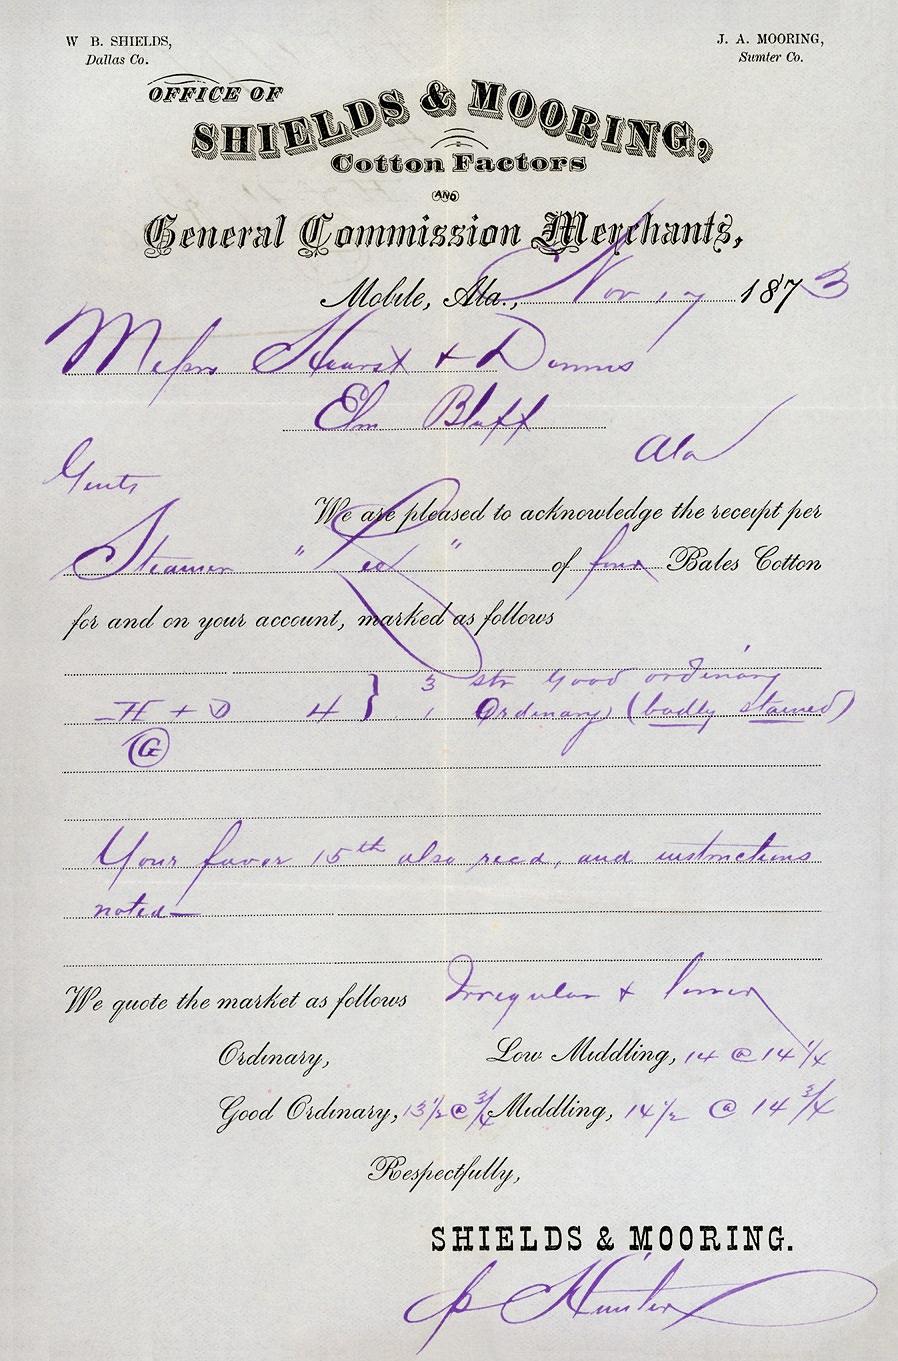 W B. SHIELDS,
Dallas Co.
J. A. MOORING,
Sumter Co.
OFFICE OF
SHIELDS & MOORING,
Cotton Factors
AND
General Commission Merchants,
Mobile, Ala., Nov 17 1873
Messrs Hearst & Dennis
Elm Bluff
Ala
Gents
We are pleased to acknowledge the receipt per
Steamer " " of four Bales Cotton
for and on your account, marked as follows
3 str Good ordinary
H + D 4 } 1 Ordinary (badly stained)
G
Your favor 15th also recd, and instructions
noted—
We quote the market as follows Irregular & lower
Ordinary, Low Middling, 14 @ 14 1/4
Good Ordinary, 13 1/2 @ 3/4 Middling, 14 1/2 @ 14 3/4
Respectfully,
SHIELDS & MOORING.
p Hunter